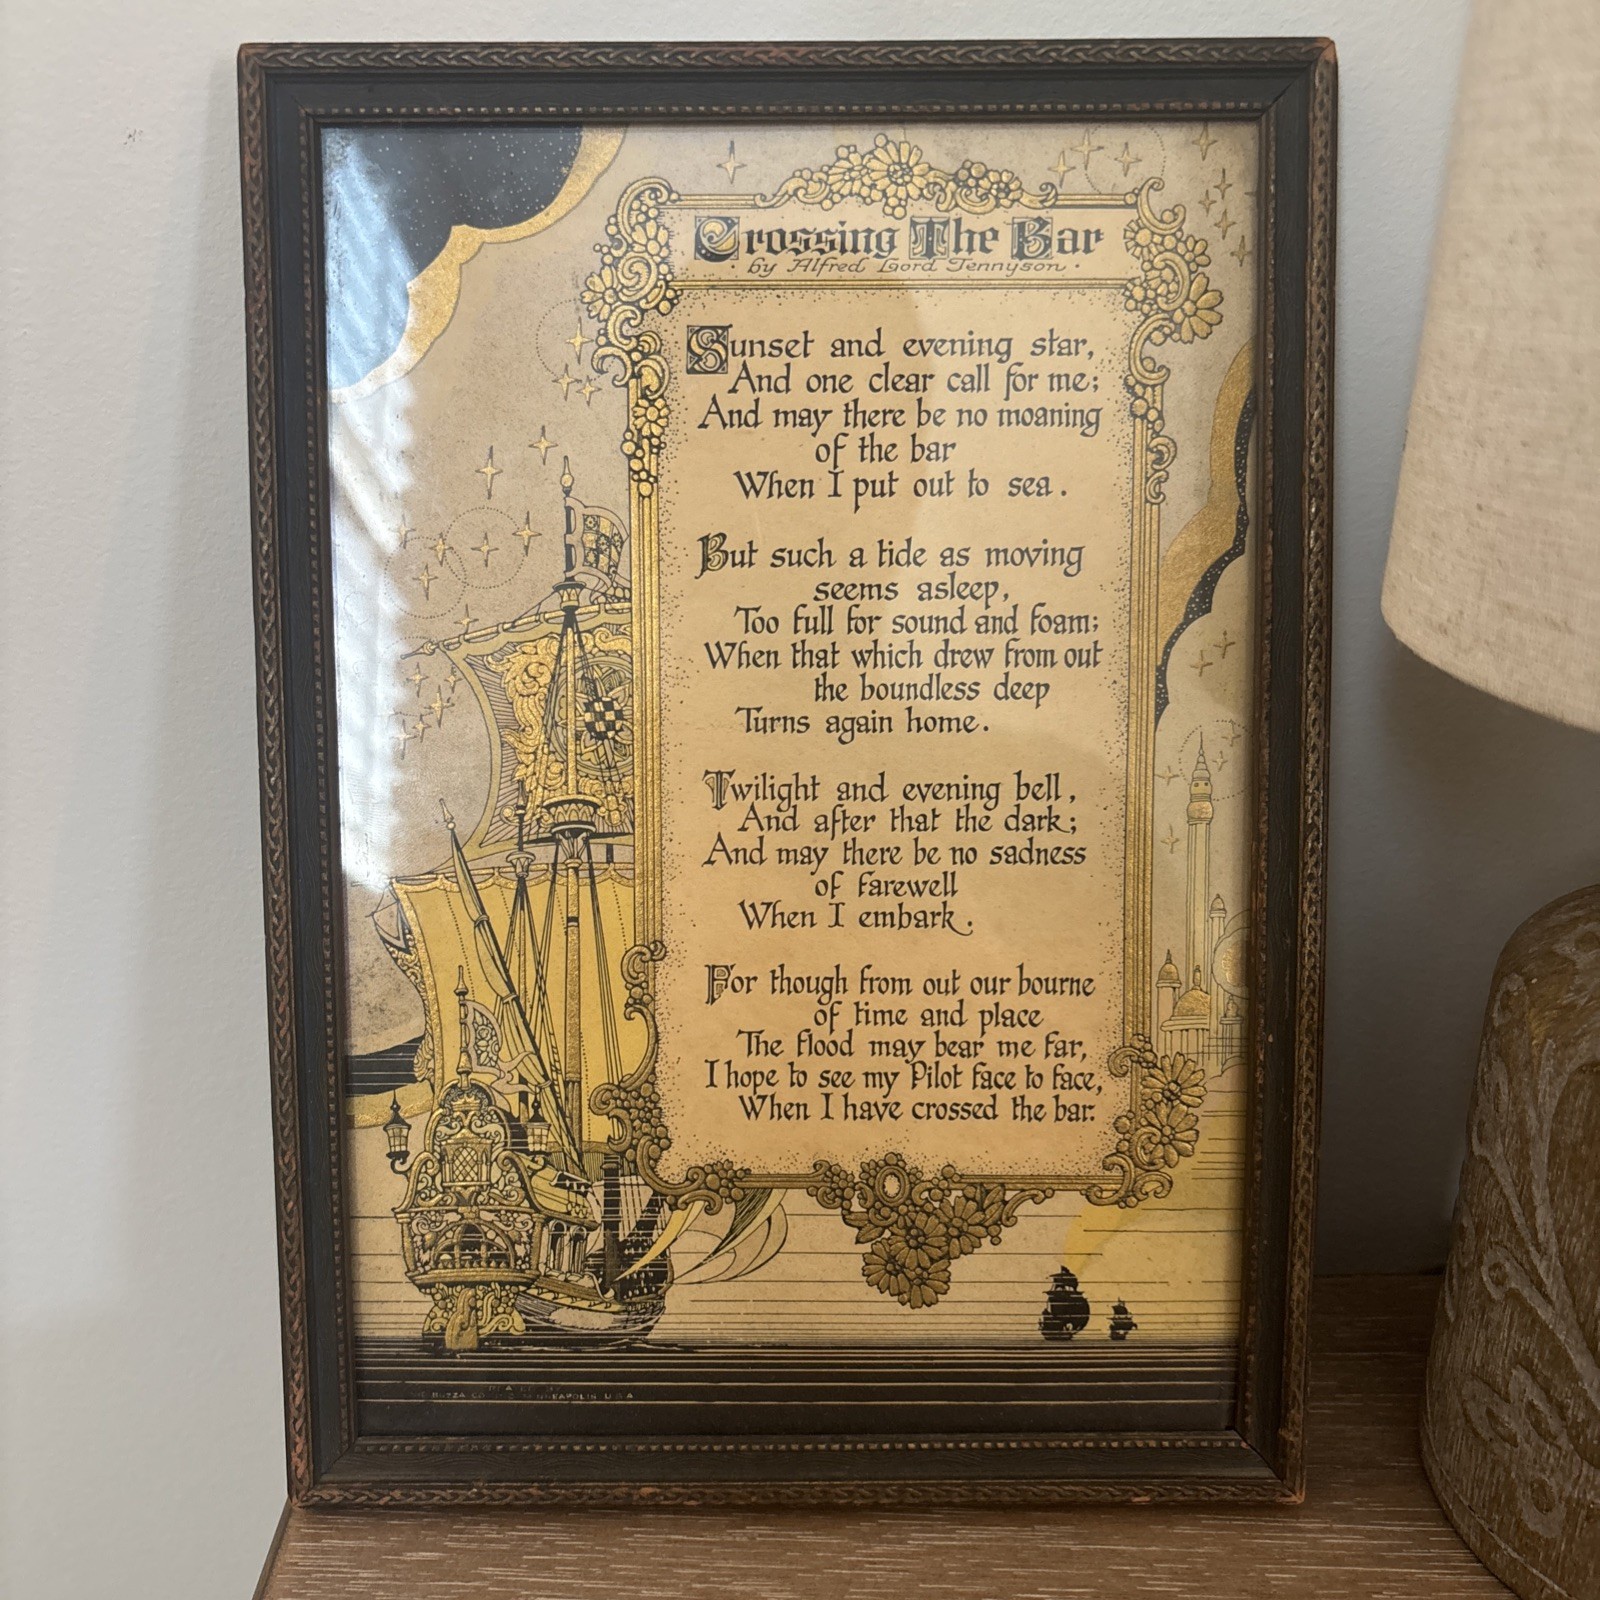 Crossing The Bar
· by Alfred Lord Tennyson ·
Sunset and evening star,
And one clear call for me;
And may there be no moaning
of the bar
When I put out to sea.
But such a tide as moving
seems asleep,
Too full for sound and foam;
When that which drew from out
the boundless deep
Turns again home.
Twilight and evening bell,
And after that the dark;
And may there be no sadness
of farewell
When I embark.
For though from out our bourne
of time and place
The flood may bear me far,
I hope to see my Pilot face to face,
When I have crossed the bar.
BUZZA U.S.A